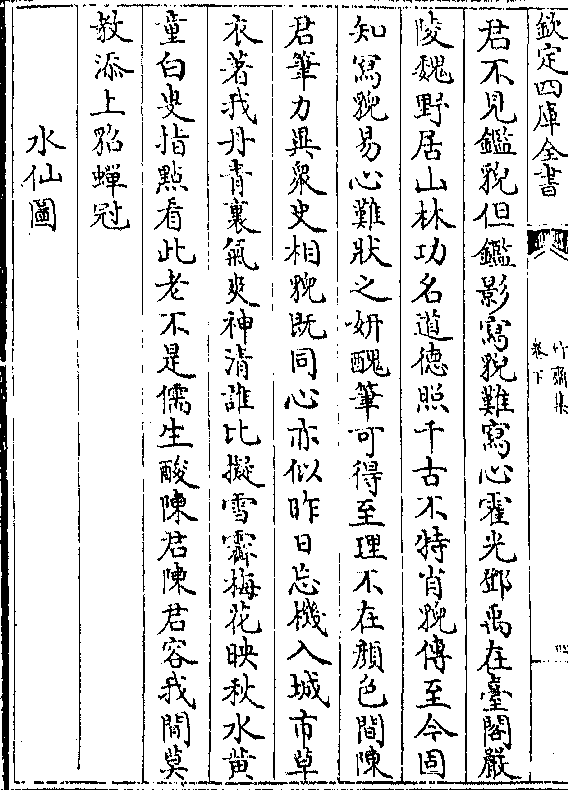 欽定四庫全書
竹齋集
卷下
君不見鑑貌但鑑影寫貌難寫心霍光鄧禹在臺閣嚴
陵魏野居山林功名道德照千古不特肖貌傳至今固
知寫貌易心難狀之妍醜筆可得至理不在顔色間陳
君筆力異衆史相貌既同心亦似昨日忘機入城市草
衣著我丹青裏氣爽神清誰比擬雪霽梅花映秋水黄
童白叟指㸃看此老不是儒生酸陳君陳君容我閒莫
教添上貂蟬冠
水仙圖